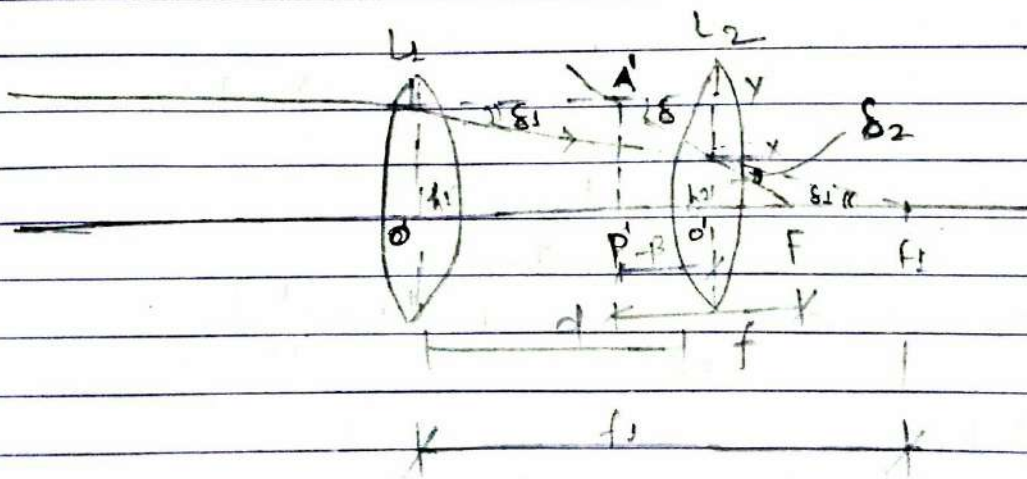 L1 L2
A' y
δ1 δ δ2
x
h1 h2 δ1
O P' -β O' F f1
d f
f1